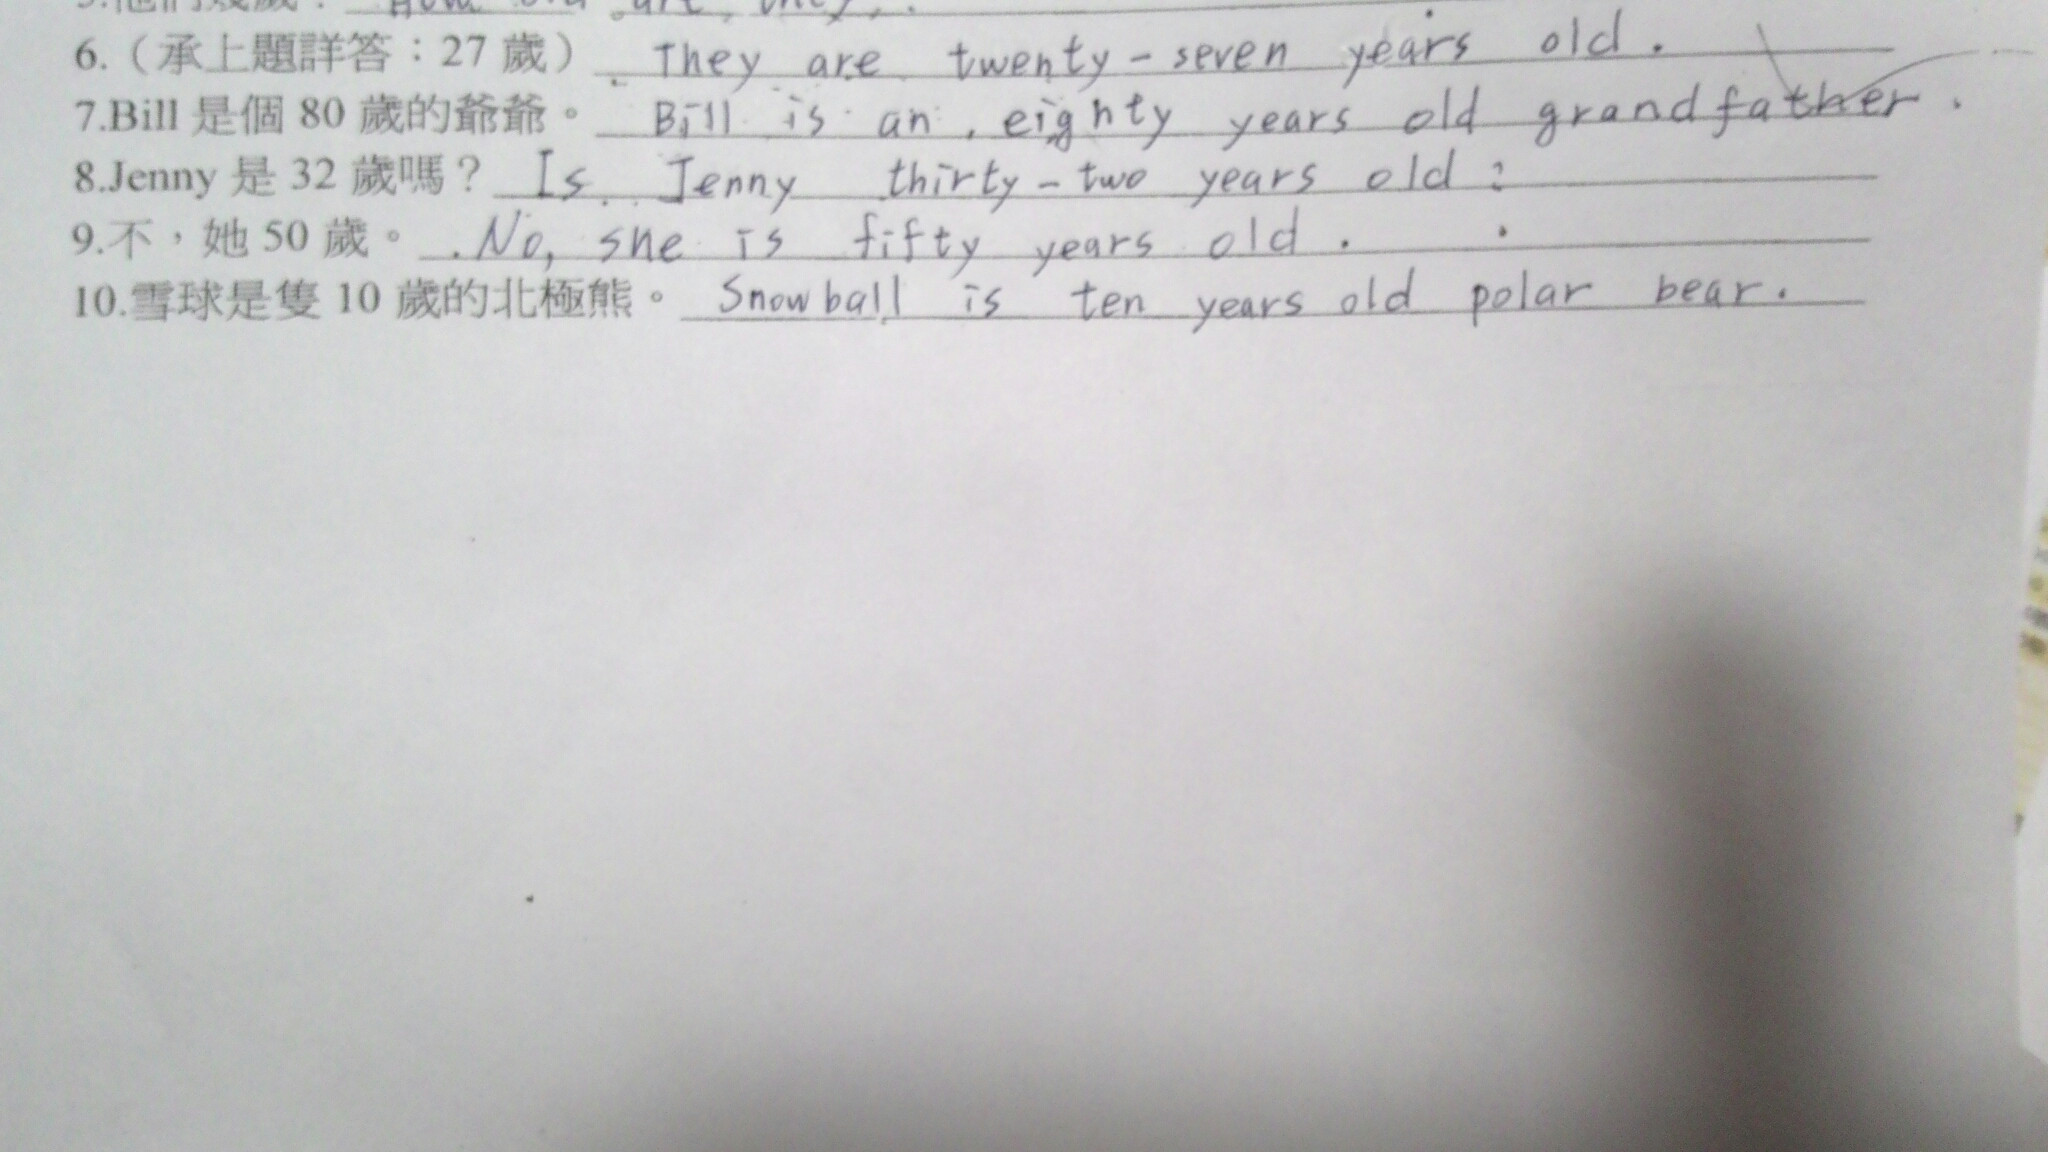 5.他們幾歲？ How old are they?
6.（承上題詳答：27 歲） They are twenty-seven years old.
7.Bill 是個 80 歲的爺爺。 Bill is an eighty years old grandfather.
8.Jenny 是 32 歲嗎？ Is Jenny thirty-two years old?
9.不，她 50 歲。 No, she is fifty years old.
10.雪球是隻 10 歲的北極熊。 Snowball is ten years old polar bear.